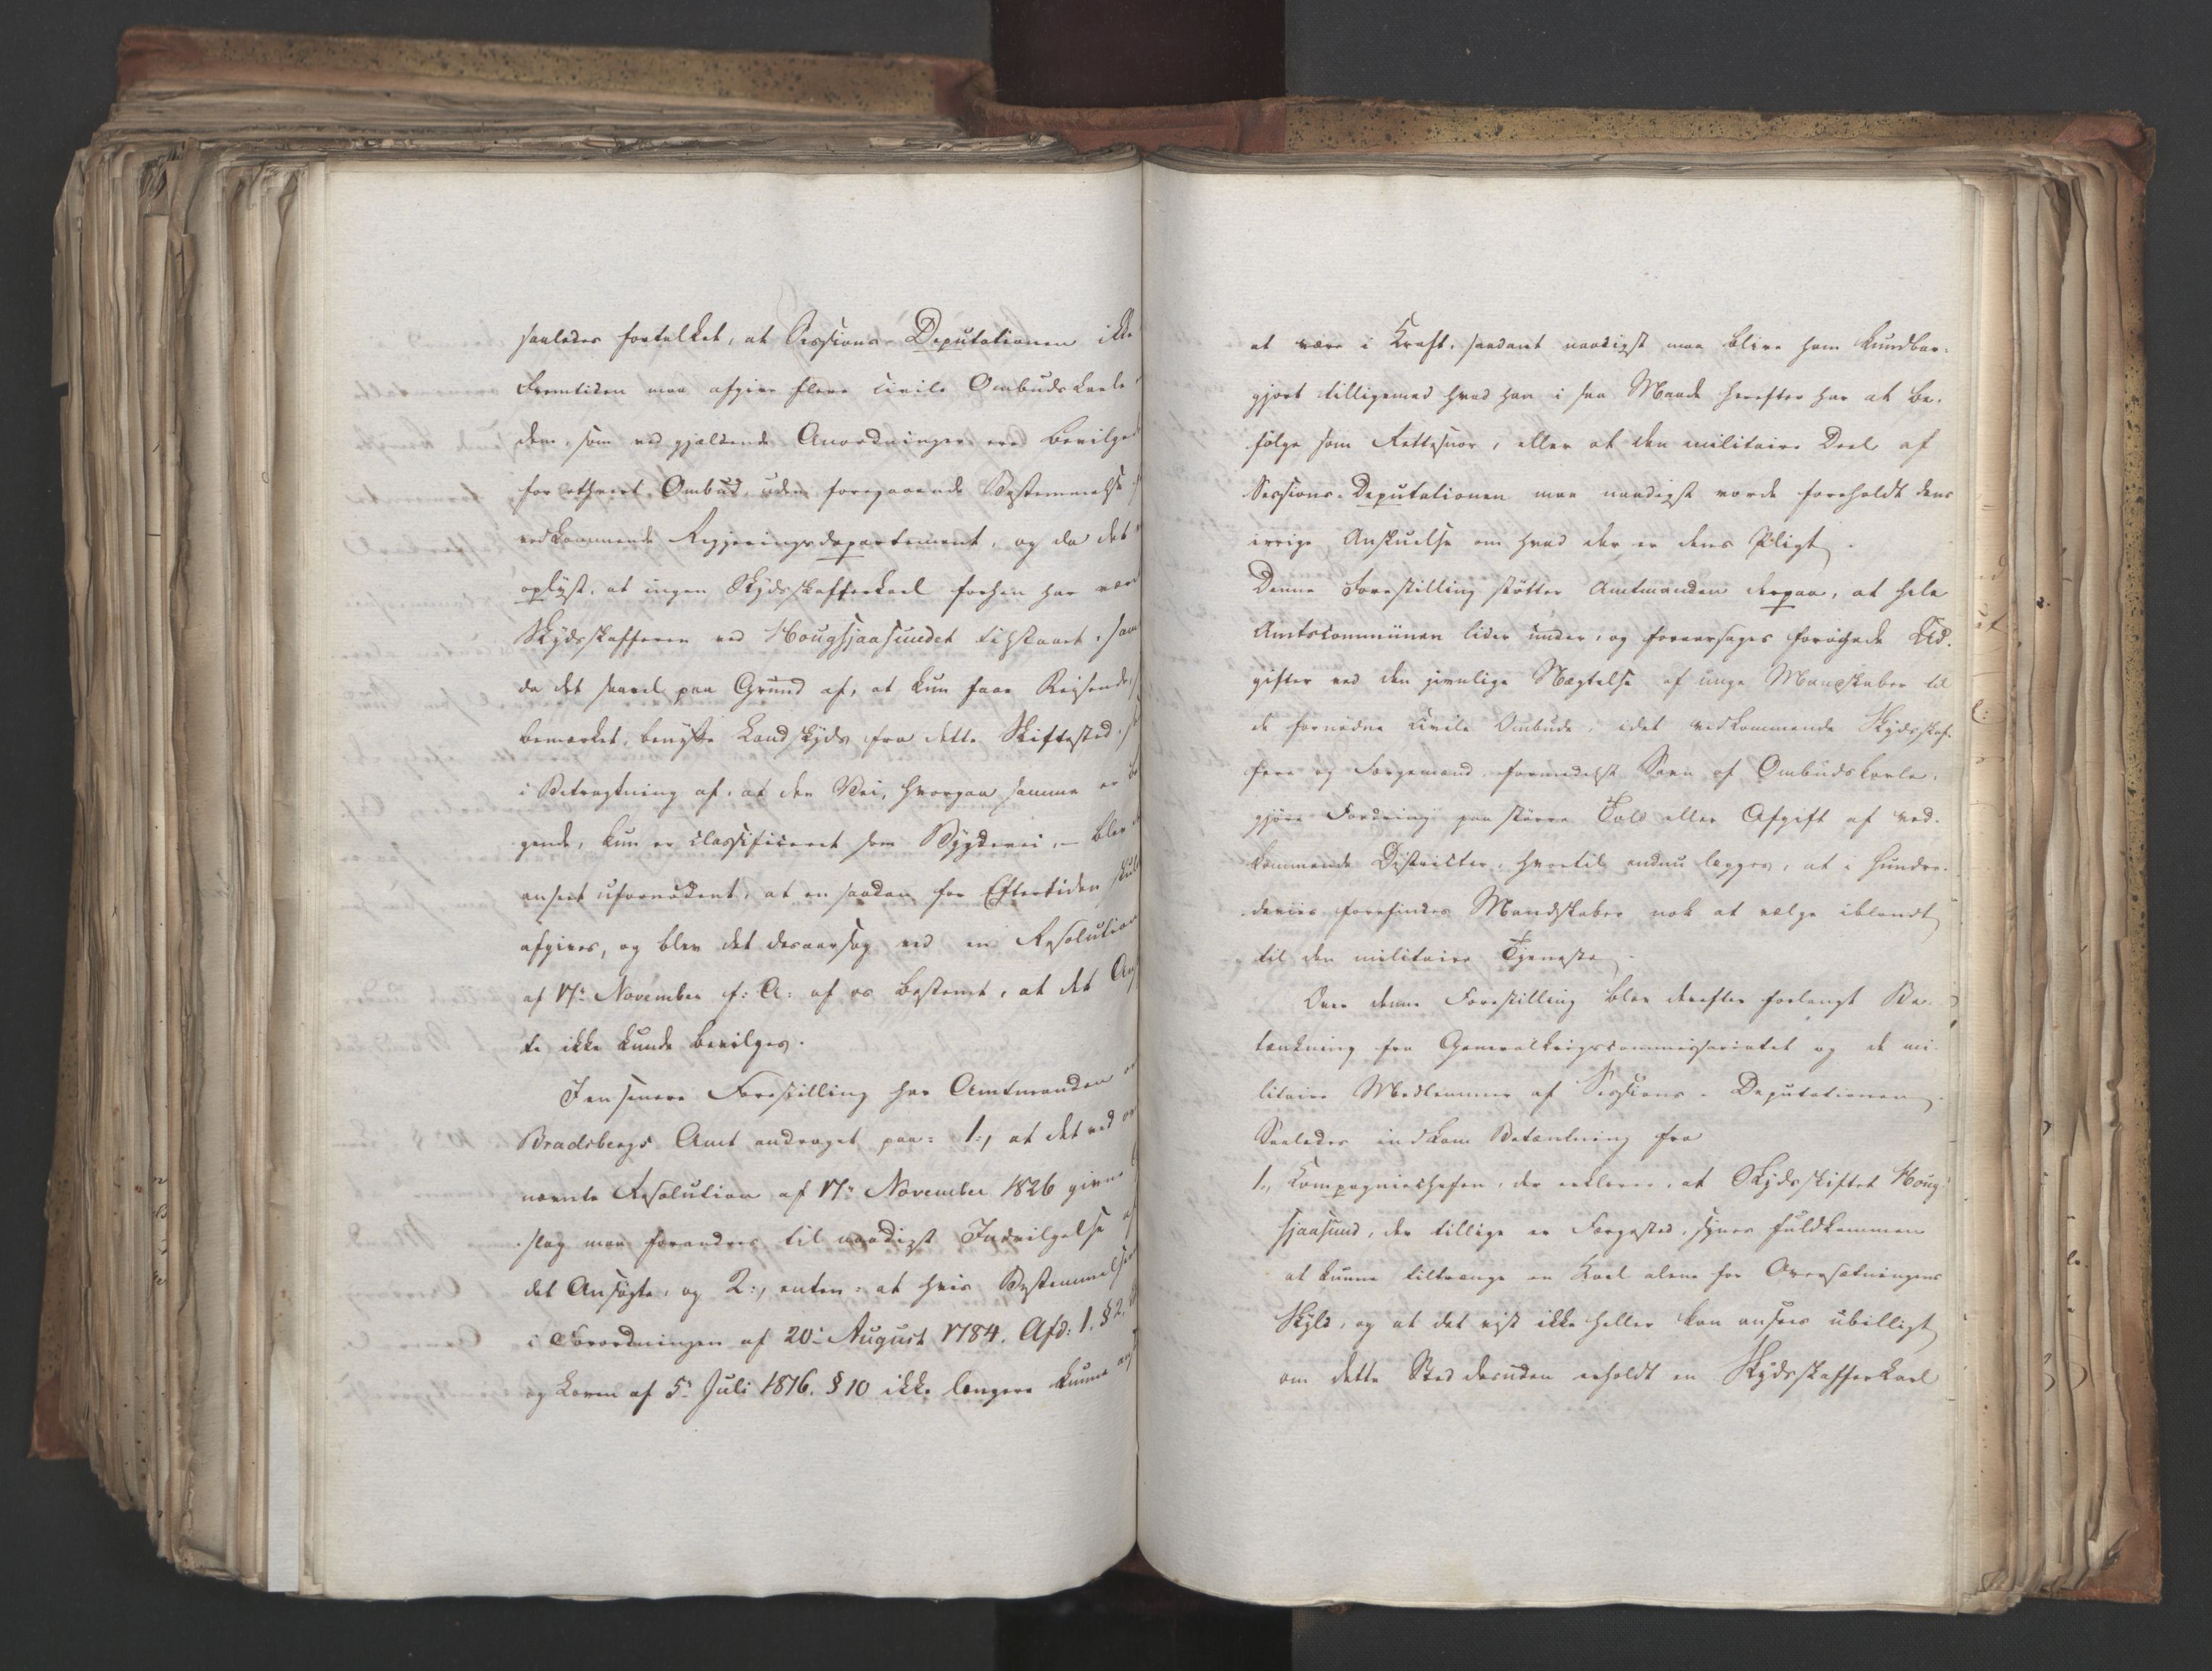 saaledes fortolket, at Sessions-Deputationen ikke
Fremtiden maa afgive flere civile Ombudskarle
dem, som ved gjældende Anordninger ere bevilge
for ethvert Ombud, uden foregaaende Bestemmelse
vedkommende Regjeringsdepartement, og da det
oplyst, at ingen Skydsskafferkarl forhen har vær
Skydsskafferen ved Hougsjaasundet tilstaaet, sam
da det saavel paa Grund af, at kun faae Reisende,
bemærket, benytte Landskyds fra dette Skiftested,
i Betragtning af, at den Vei, hvorpaa samme er
gende, kun er classificeret som Bygdevei, – blev
anseet ufornødent, at en saadan for Eftertiden skul
afgives, og blev det desaarsag ved en Resolution
af 17de November f: A: af os bestemt, at det An
te ikke kunde bevilges.
I en senere Forestilling har Amtmanden
Bradsbergs Amt andraget paa: 1:, at det ved
nævnte Resolution af 17de November 1826 givne
slag maa forandres til naadigst Indvilgelse af
det Ansøgte, og 2:, enten: at hvis Bestemmelsen
i Forordningen af 20de August 1784. Afd: 1. § 2.
og Loven af 5te Juli 1816. § 10 ikke længere kunne an
at være i Kraft, saadant naadigst maa blive ham kundbar-
gjort tilligemed hvad han i saa Maade herefter har at be-
følge som Rettesnor, eller at den militaire Deel af
Sessions-Deputationen maa naadigst vorde foreholdt dens
irrige Anskuelse om hvad der er dens Pligt.
Denne Forestilling støtter Amtmanden derpaa, at hele
Amtscommunen lider under, og foraarsages forøgede Ud-
gifter ved den jevnlige Nægtelse af unge Mandskaber til
de fornødne civile Ombude, idet vedkommende Skydsskaf-
fere og Færgemænd formedelst Savn af Ombudskarle,
gjøre Fordring paa større Told eller Afgift af ved-
kommende Districter, hvortil endnu lægges, at i Hundre-
deviis forefindes Mandskaber nok at vælge iblandt
til den militaire Tjeneste.
Over denne Forestilling blev derefter forlangt Be-
tænkning fra Generalkrigscommissariatet og de mi-
litaire Medlemmer af Sessions-Deputationen.
Saaledes indkom Betænkning fra
1., Kompagniechefen, der erklærer, at Skydsskiftet Houg-
sjaasund, der tillige er Færgested, synes fuldkommen
at kunne tiltrænge en Karl alene for Oversætningens
Skyld, og at det vist ikke heller kan ansees ubilligt
om dette Sted desuden erholdt en Skydsskafferkarl